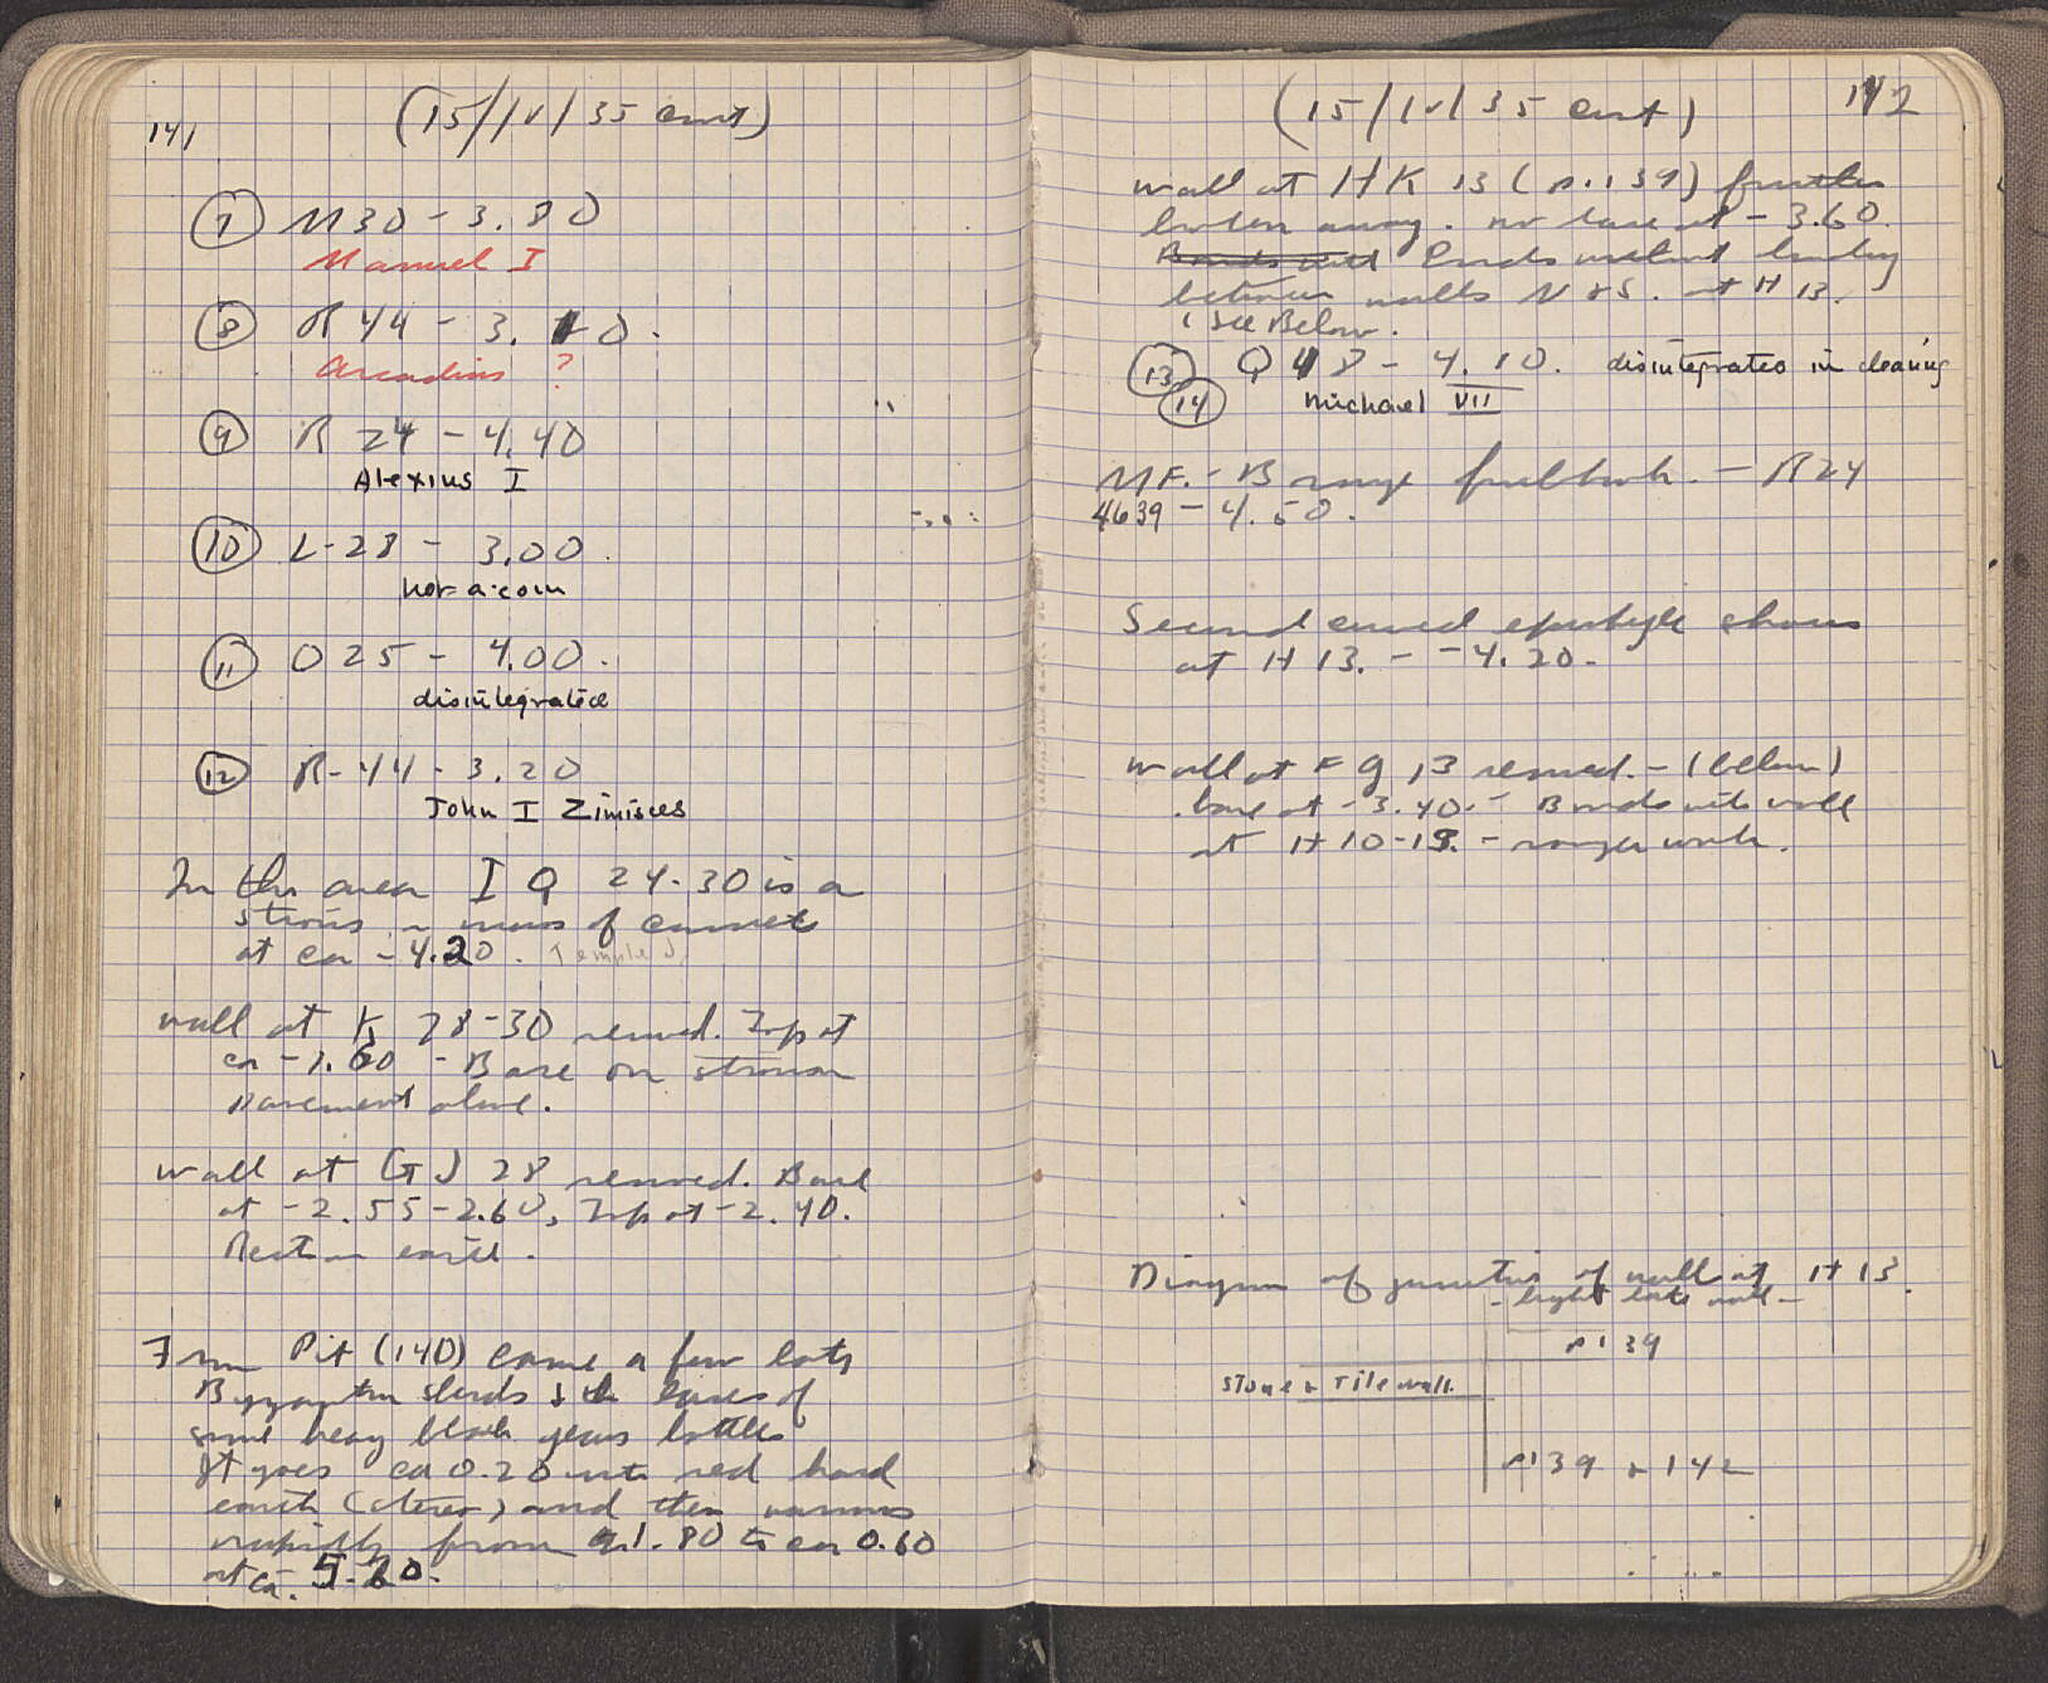 141
(15/IV/35 cont)
7 M30 - 3.80
Manuel I
8 R 44 - 3.10.
Arcadius ?
9 R 24 - 4.40
Alexius I
10 L-28 - 3.00.
not a coin
11 O 25 - 4.00.
disintegrated
12 R-44 - 3.20
John I Zimisces
In the area I Q 24-30 is a
mass of cement
at ca - 4.20. Temple J.
wall at K 28-30 removed. Top at
ca - 1.60 - Base on
pavement alone.
wall at GJ 28 removed. Base
at - 2.55-2.60, Top at - 2.40.
Rest on earth.
From Pit (140) came a few late
Byzantine sherds & the bases of
some heavy black glass bottles
It goes ca 0.20 into red hard
earth (stereo) and then narrows
rapidly from ca 1.80 to ca 0.60
at ca. 5.20.
(15/IV/35 cont)
142
wall at HK 13 (p.139) further
broken away. no base at - 3.60.
Bonds with Ends without bonding
between walls N & S. at H 13.
(See Below.
13 Q 48 - 4.10. disintegrated in cleaning
14 Michael VII
MF. - B - R24
4639 - 4.50.
Second curved epistyle shows
at H 13. - -4.20-
Wall at FG 13 removed. - (below)
base at - 3.40. - Bonds with wall
at H 10-19.
Diagram of junction of wall at H 13.
- light late wall -
p 139
Stone & Tile wall.
p 139 & 142